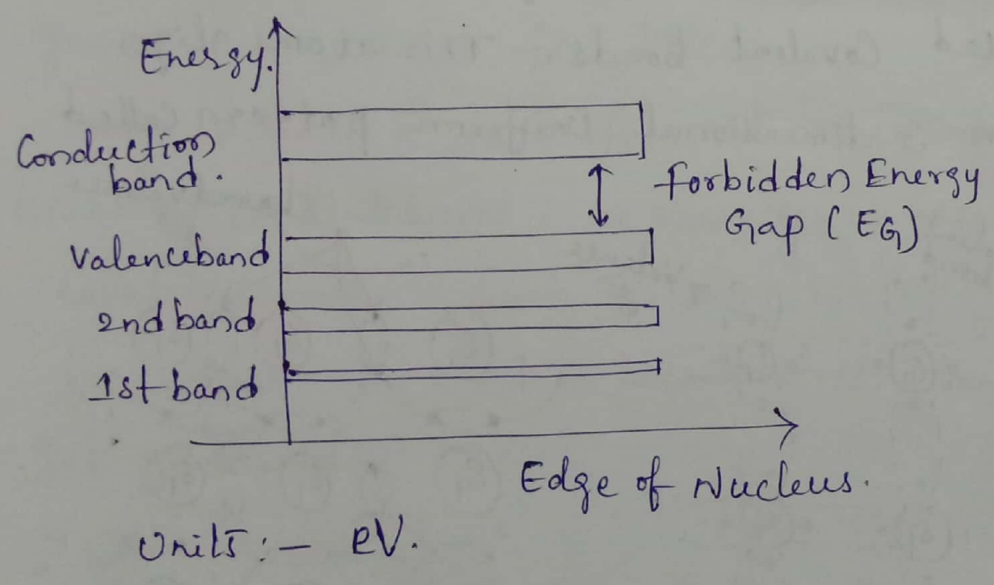 Energy.
Conduction
band.
forbidden Energy
Gap (EG)
Valenceband
2nd band
1st band
Edge of Nucleus.
Units :- eV.